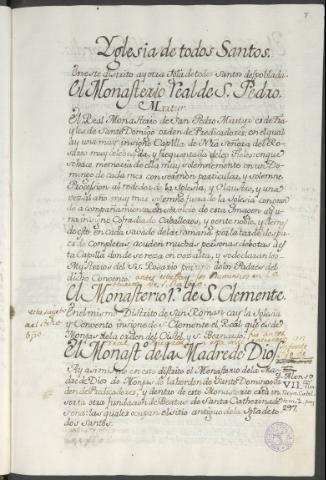 Yglesia de todos Santos.
En este distrito ay otra Igla de todos santos despoblada.
El Monasterio Real de S. Pedro
Martyr.
El Real Monasterio de San Pedro Martyr es de fra
yles de Santo Domingo orden de Predicadores, en el qual
ay una muy insigne Capilla de Nra señora del Ro
sario muy celebrada, y frequentada de los fieles en que
se hace memoria de ella muy solemnemente en un Do
mingo de cada mes con sermon particular, y solemne
Procession al rededor de la Iglesia, y Claustro, y una
vez al año muy mas solemne fuera de la Iglesia con gran
de acompañamiento en servicio de esta Imagen ay
una insigne Cofradia de Caballeros, y gente noble, y demas
de esto en cada Savado de la semana por la tarde despu
es de completas acuden muchas personas debotas a es
ta Capilla donde se reza en voz alta, y se declaran los
Mysterios del Sto Rosario por uno de los Padres del
dicho Convento.
El Monasterio Rl de S. Clemente.
En el mismo Distrito de San Roman cae la Iglesia
y Convento insigne de S. Clemente el Real que es de
Monjas de la orden de Cistel, y S. Bernardo.
El Monastº de la Madre de Dios
Ay asimismo en este distrito el Monasterio de la Ma
dre de Dios de Monjas de la orden de Santo Domingo or
den de Predicadores, y dentro de este Monasterio está in
serta otra fundacion de Beatas de Santa Catherina de
Sena: las quales ocupan el sitio antiguo de la Igla de to
dos santos.
D. Alonso
VII.
297.